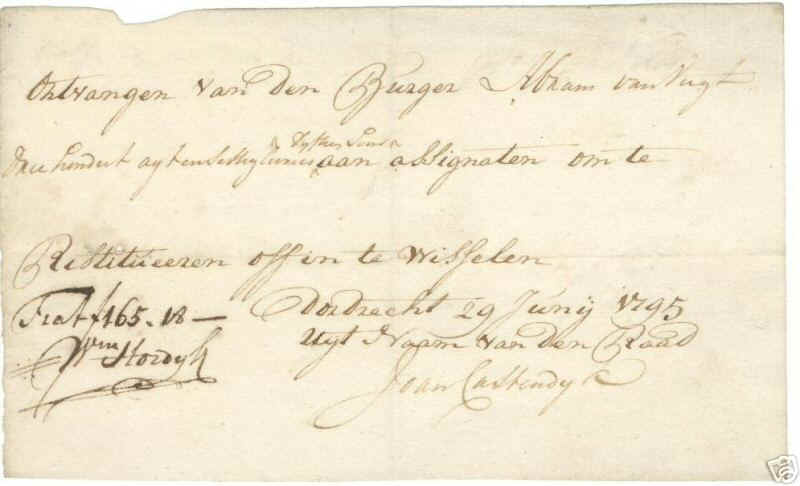 Ontvangen van den Burger Abram van Vugt
drie hondert agt en sestig aan assignaten om te
Restitueeren off in te wisselen
Fiat ƒ165.18 —
Dordrecht 29 Junij 1795
Wm Hordijk
Uyt Naam van den Raad
Joan Castendyk